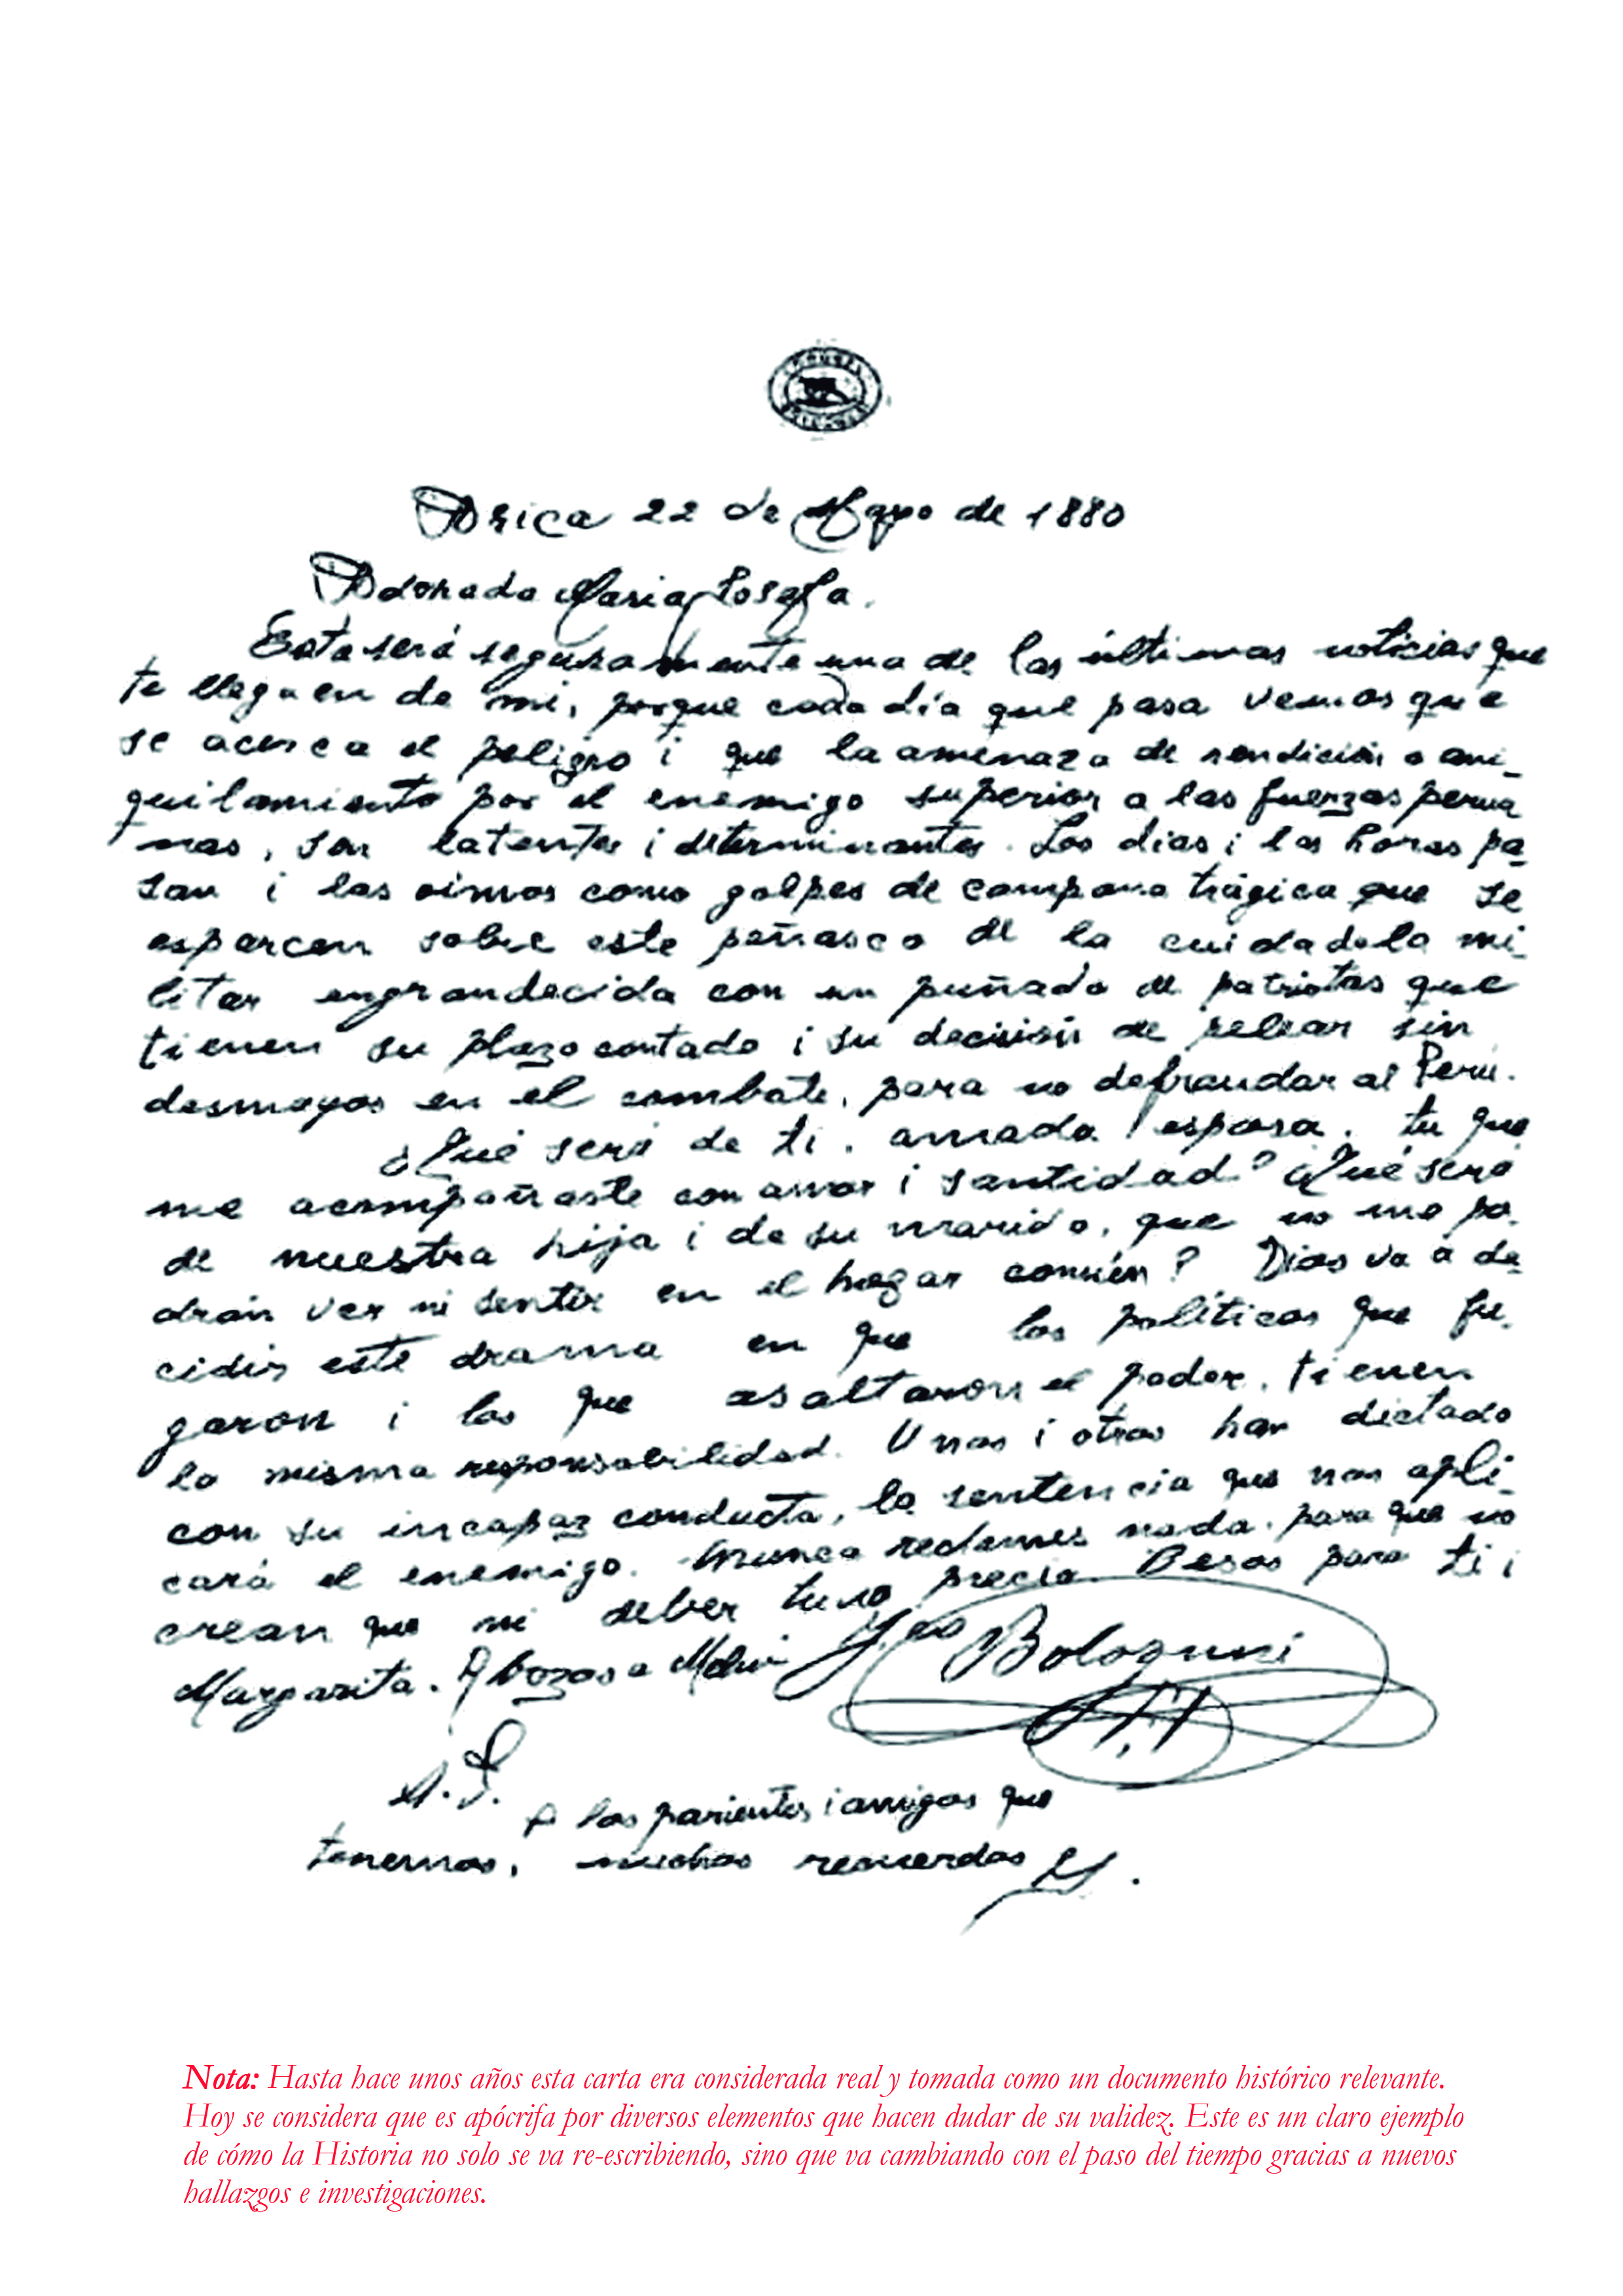 Arica 22 de Mayo de 1880
Adorada Maria Josefa.
Esta será seguramente una de las últimas noticias que
te lleguen de mi, porque cada día que pasa vemos que
se acerca el peligro i que la amenaza de rendición o ani_
quilamiento por el enemigo superior a las fuerzas perua
nas, son latentes i determinantes. Los dias i las horas pa_
san i las oimos como golpes de campana trágica que se
esparcen sobre este peñasco de la cuidadela mi_
litar engrandecida con un puñado de patriotas que
tienen su plazo contado i su decisión de pelear sin
desmayos en el combate, para no defraudar al Perú.
¿Qué será de ti, amada esposa, tu que
me acompañaste con amor i santidad? ¿Qué será
de nuestra hija i de su marido, que no me po_
drán ver ni sentir en el hogar común? Dios va a de_
cidir este drama en que los políticos que fu_
garon i los que asaltaron el poder, tienen
la misma responsabilidad. Unos i otros han dictado
con su incapaz conducta, la sentencia que nos apli_
cará el enemigo. Nunca reclames nada, para que no
crean que mi deber tuvo precio. Besos para ti i
Margarita. Abrazos a Melvi
Fco Bolognesi
A los parientes i amigos que
tenemos, muchos recuerdos
Nota: Hasta hace unos años esta carta era considerada real y tomada como un documento histórico relevante.
Hoy se considera que es apócrifa por diversos elementos que hacen dudar de su validez. Este es un claro ejemplo
de cómo la Historia no solo se va re-escribiendo, sino que va cambiando con el paso del tiempo gracias a nuevos
hallazgos e investigaciones.